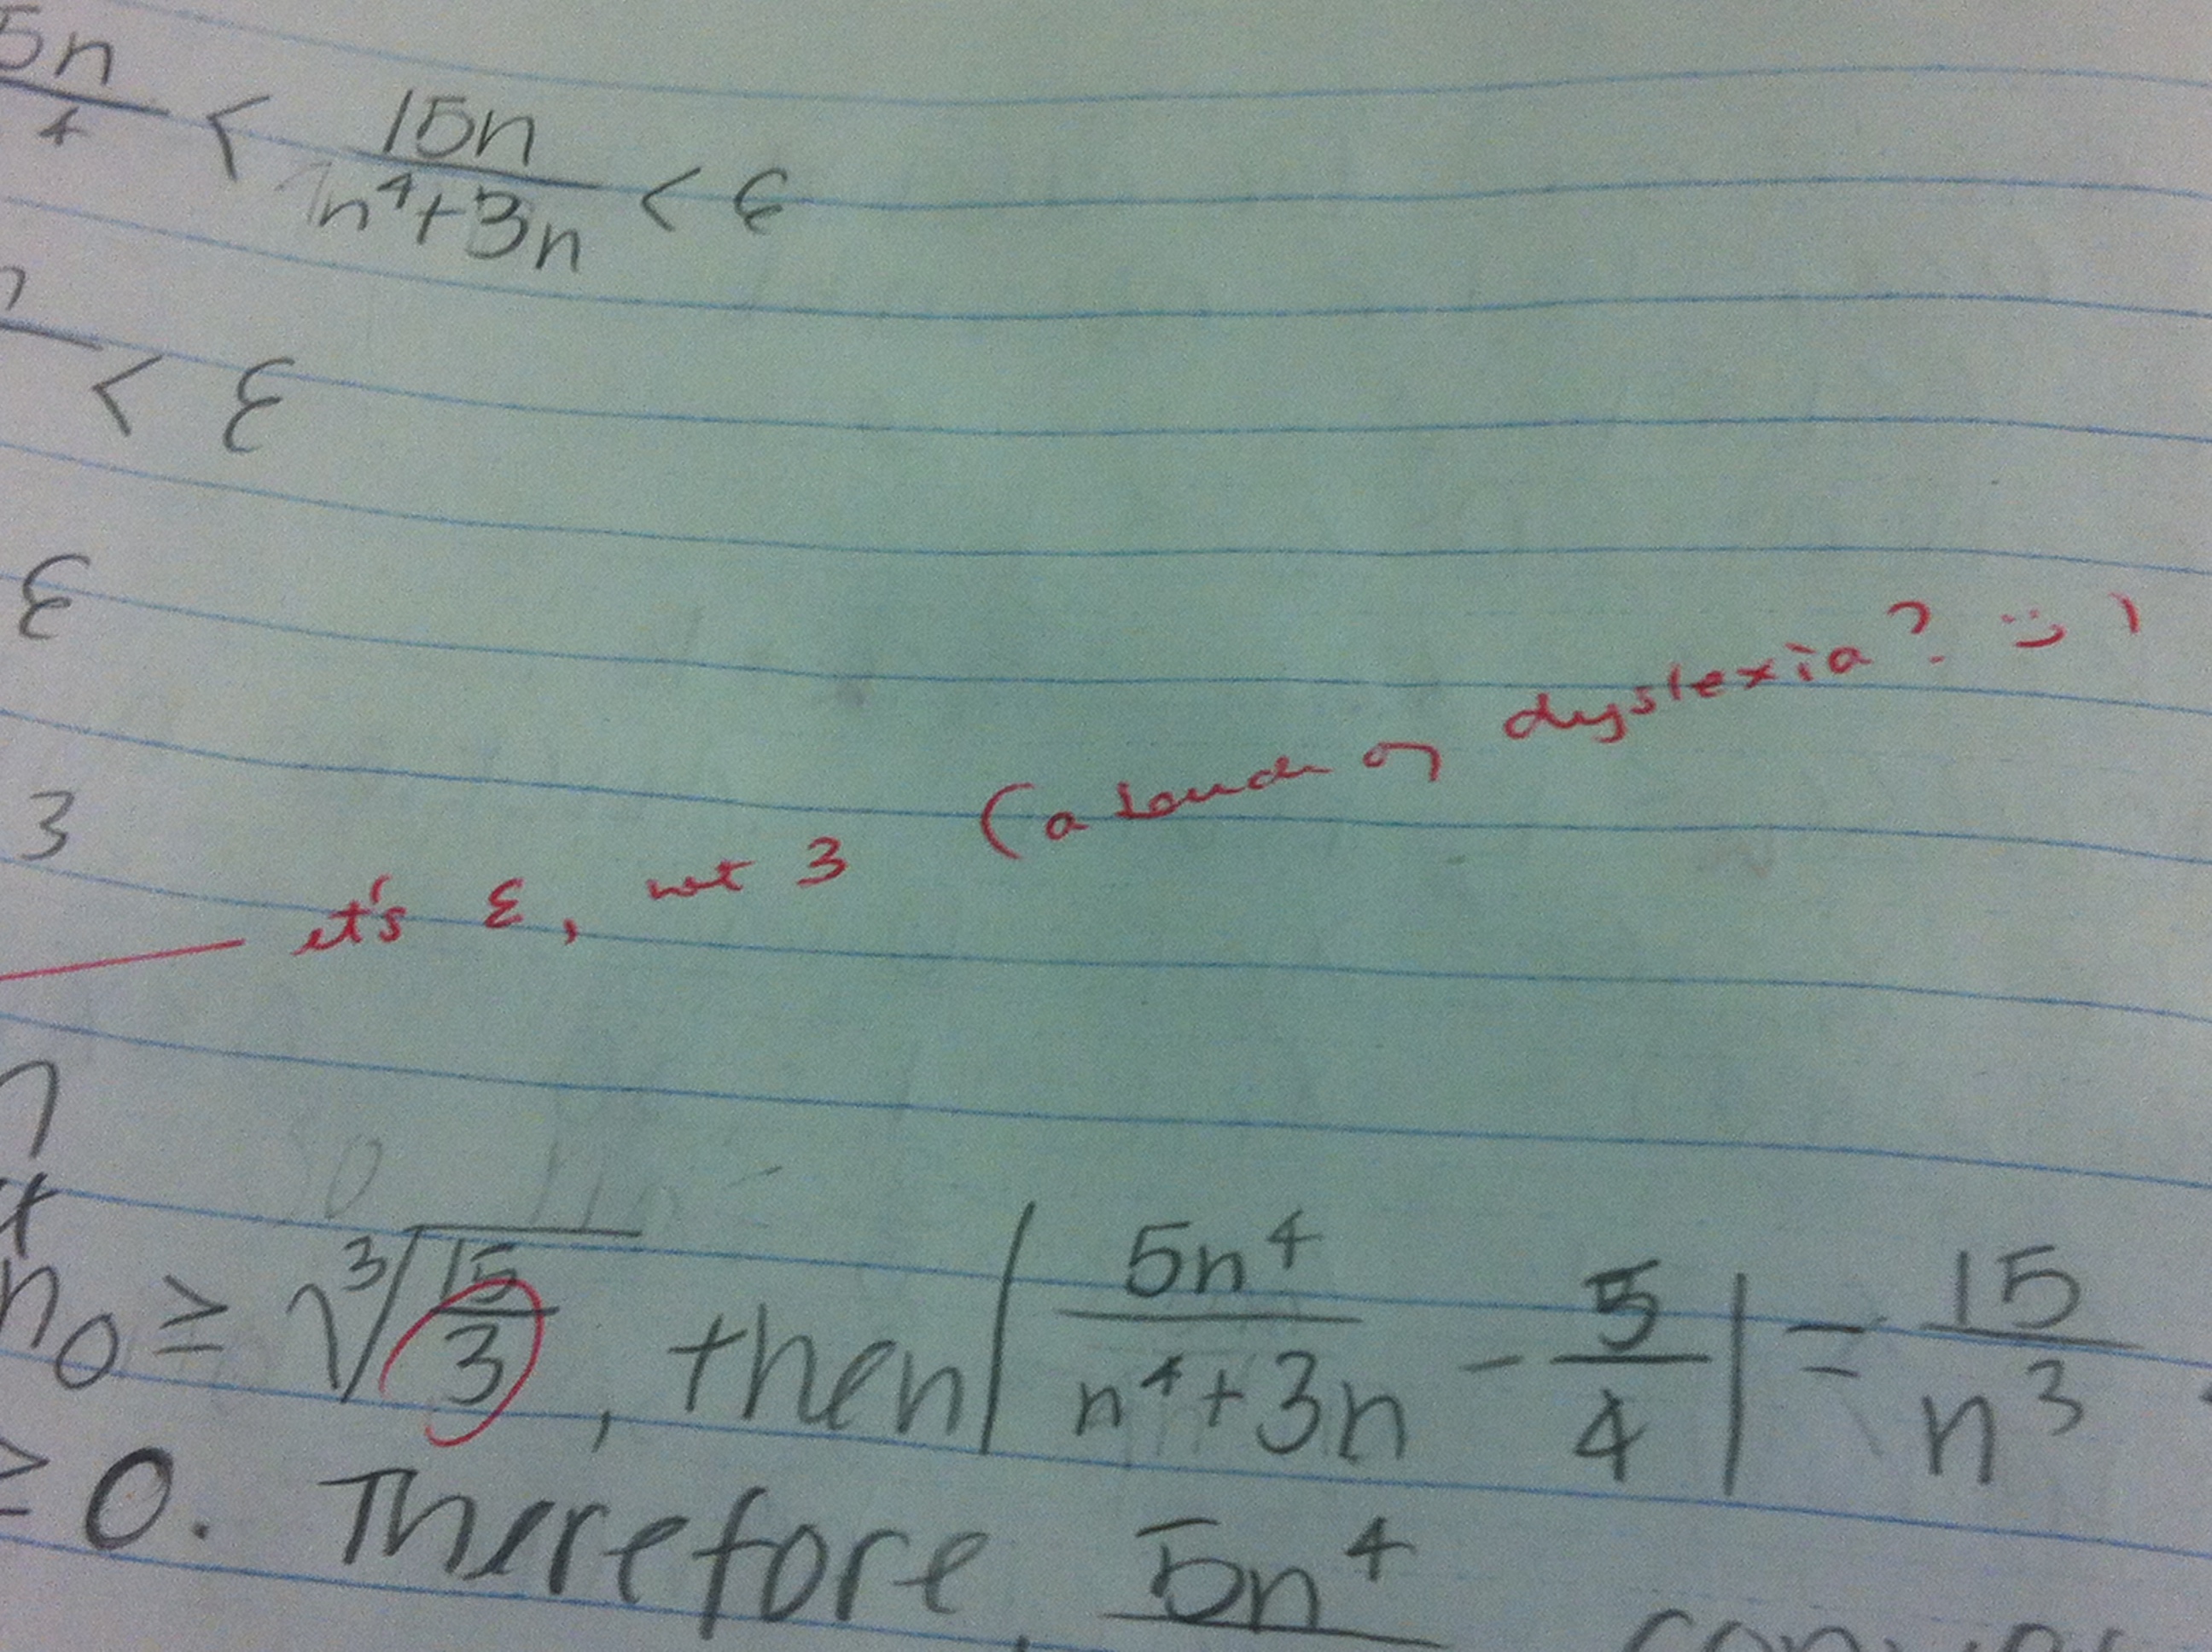 5n/4 < 15n/(n⁴+3n) < ε
< ε
ε
3
it's ε, not 3 (a touch of dyslexia? :))
n
n₀ ≥ ³√(15/3), then |5n⁴/(n⁴+3n) - 5/4| = 15/n³
≥ 0. Therefore, 5n⁴